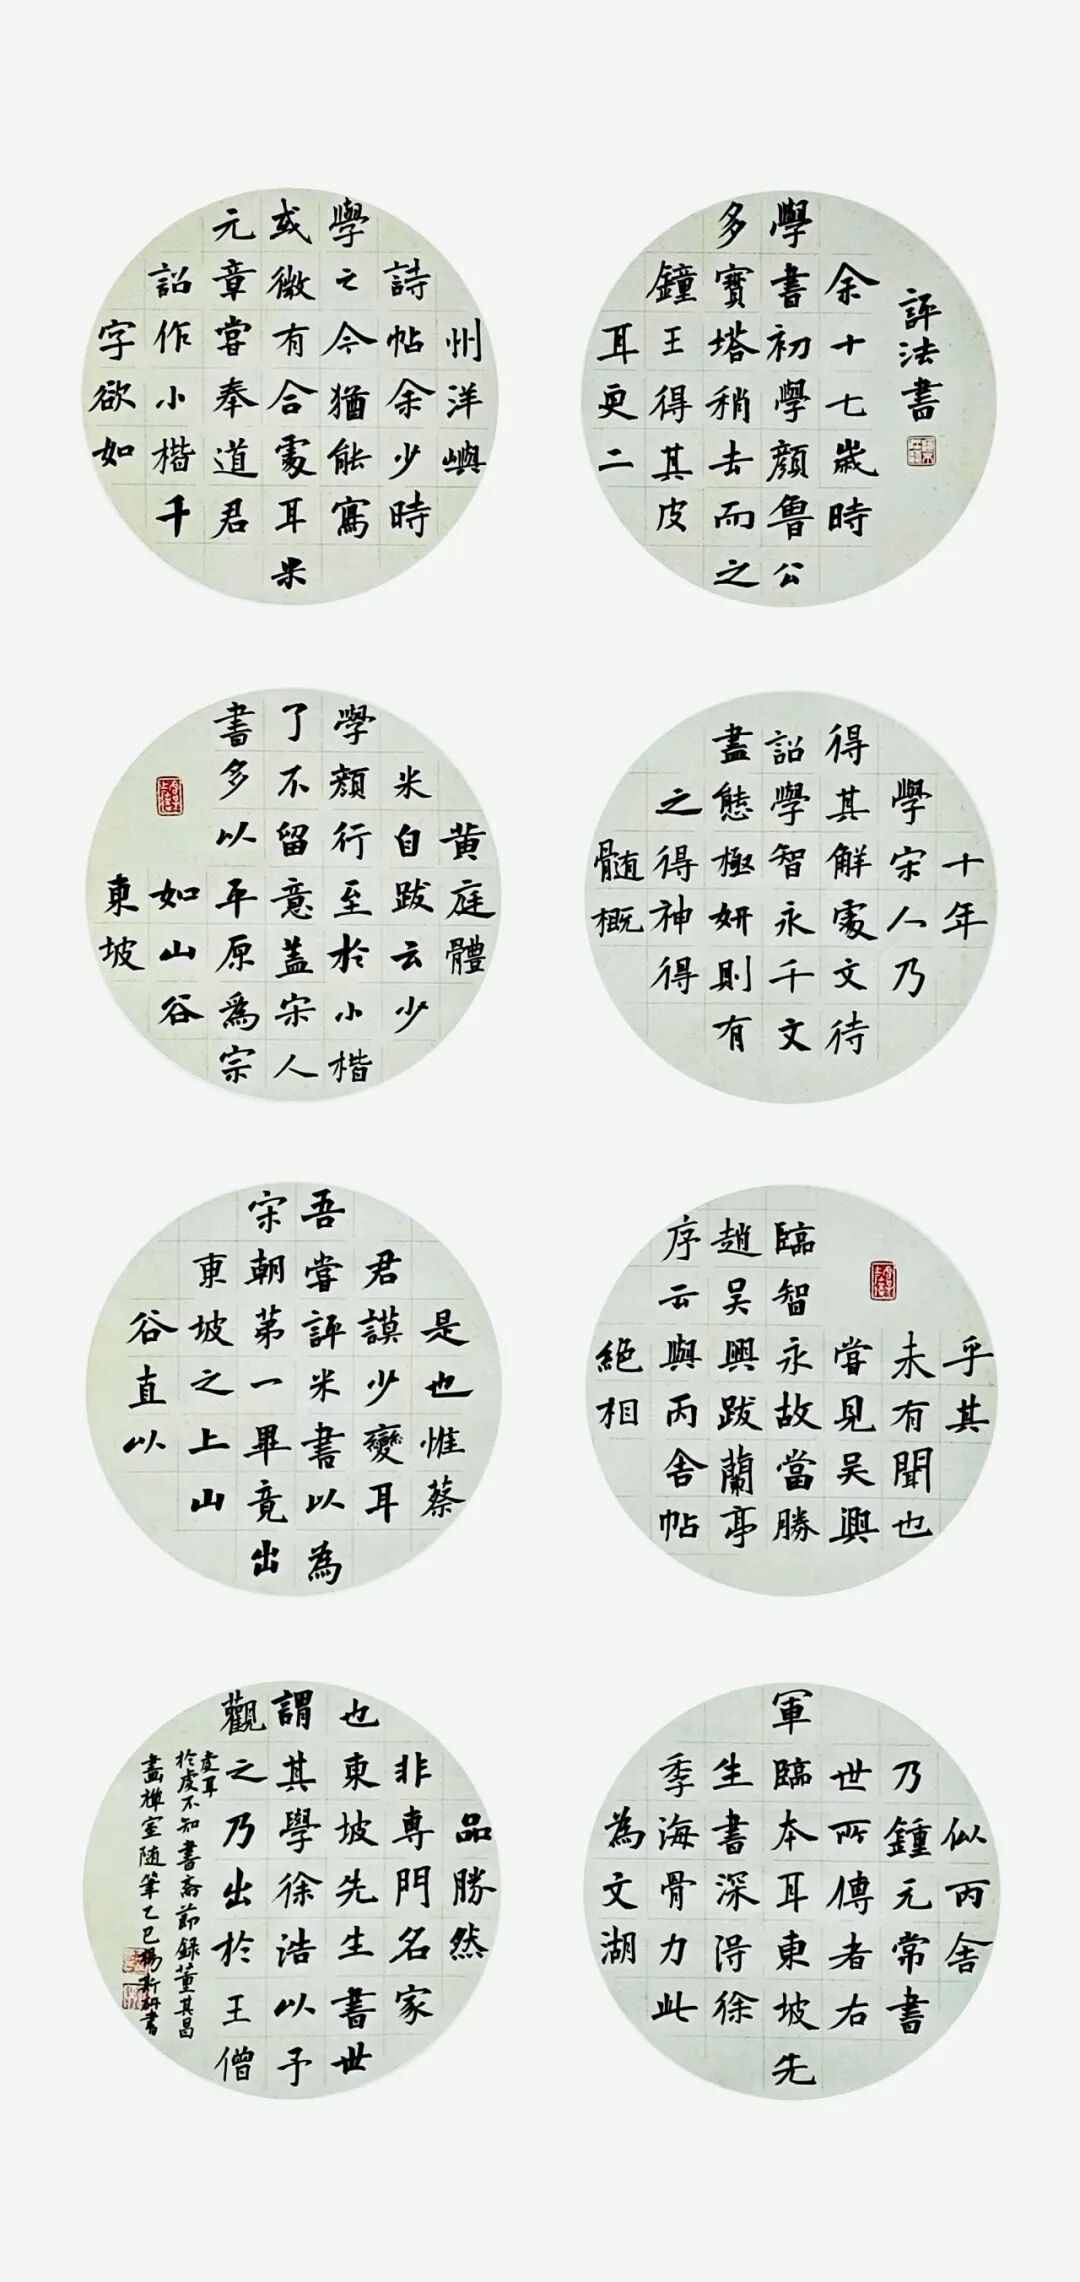 評法書
余十七歲時
學書初學顏魯公
多寶塔稍去而之
鐘王得其皮
耳更二
十年
學宋人乃
得其解處文待
詔學智永千文
盡態極妍則有
之得神得
髓概
乎其
未有聞也
嘗見吳興
臨智永故當勝
趙吳興跋蘭亭
序云與丙舍帖
絕相
似丙舍
乃鍾元常書
世所傳者右
軍臨本耳東坡先
生書深得徐
季海骨力此
為文湖
州洋嶼
詩帖余少時
學之今猶能寫
或微有合處耳米
元章嘗奉道君
詔作小楷千
字欲如
黃庭體
米自跋云少
學顏行至於小楷
了不留意蓋宋人
書多以平原為宗
如山谷
東坡
是也惟蔡
君謨少變耳
吾嘗評米書以為
宋朝第一畢竟出
東坡之上山
谷直以
品勝然
非專門名家
也東坡先生書世
謂其學徐浩以予
觀之乃出於王僧
虔耳
於虔不知書齋節錄董其昌
畫禪室隨筆乙巳楊新書